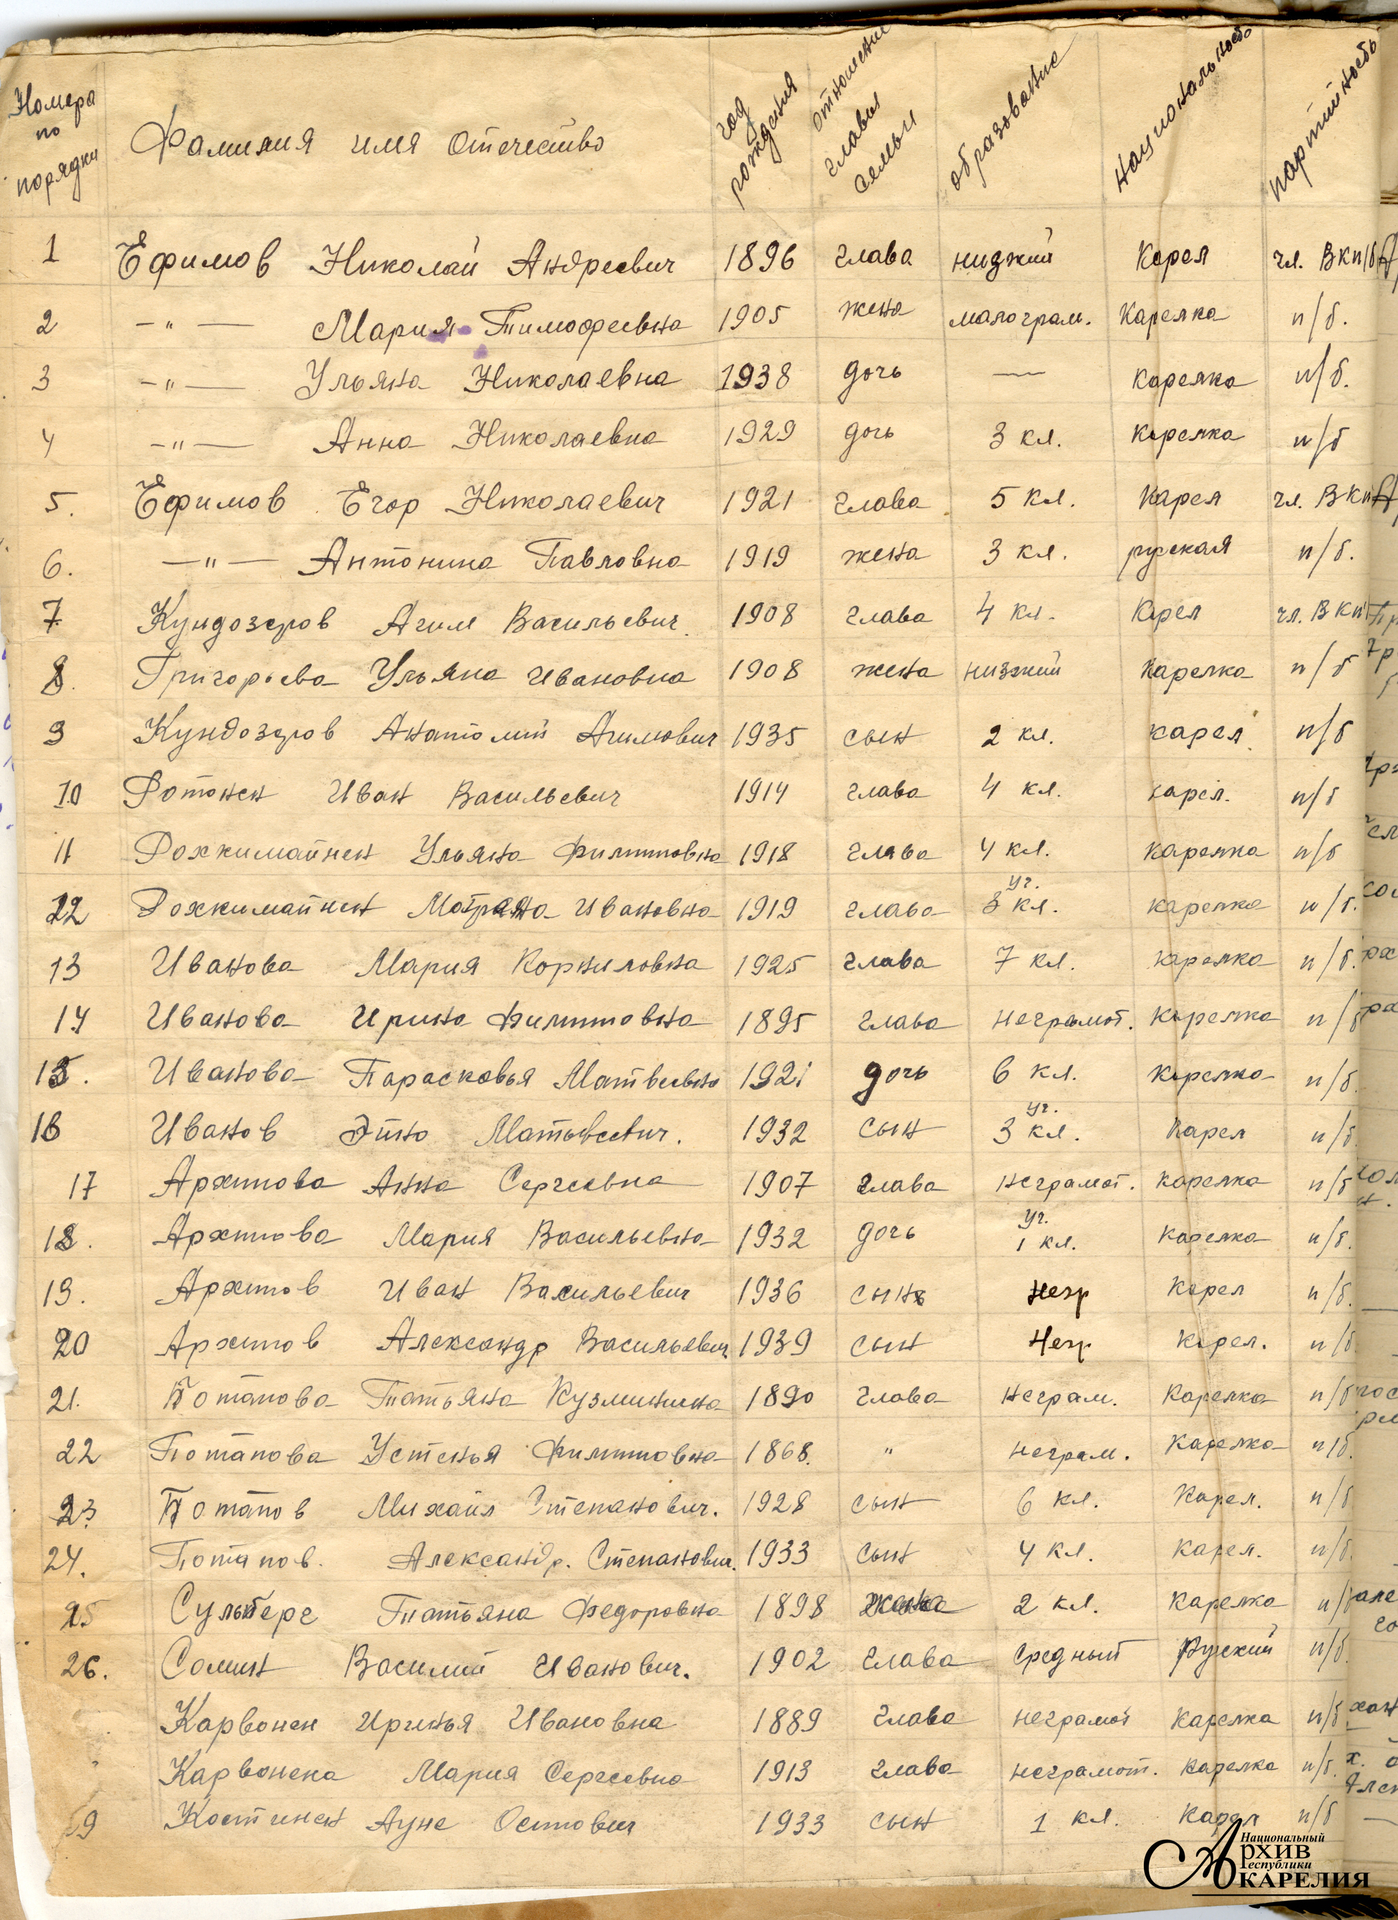 Номера по порядки Фамилия имя отечество год рождения отношение главы семьи образование национальность партийность
1 Ефимов Николай Андреевич 1896 глава низжий Карел чл. ВКП/б
2 -"- Мария Тимофеевна 1905 жена малограм. Карелка п/б.
3 -"- Ульяна Николаевна 1938 дочь — карелка п/б.
4 -"- Анна Николаевна 1929 дочь 3 кл. карелка п/б
5. Ефимов Егор Николаевич 1921 глава 5 кл. Карел чл. ВКП
6. -"- Антонина Павловна 1919 жена 3 кл. русская п/б.
7 Кундозеров Аким Васильевич. 1908 глава 4 кл. Карел чл. ВКП
8. Григорьева Ульяна Ивановна 1908 жена низжий Карелка п/б
9 Кундозеров Анатолий Акимович 1935 сын 2 кл. карел п/б
10 Ротонен Иван Васильевич 1914 глава 4 кл. карел. п/б
11 Рохкимайнен Ульяна Филипповна 1918 глава 4 кл. карелка п/б
12 Рохкимайнен Матрена Ивановна 1919 глава уч. 3 кл. карелка п/б.
13 Иванова Мария Корниловна 1925 глава 7 кл. карелка п/б.
14 Иванова Ирина Филипповна 1895 глава неграмот. карелка п/б
15. Иванова Парасковья Матвеевна 1921 дочь 6 кл. карелка п/б.
16 Иванов Эйно Матвеевич. 1932 сын уч. 3 кл. Карел п/б
17 Архипова Анна Сергеевна 1907 глава неграмот. карелка п/б
18. Архипова Мария Васильевна 1932 дочь уч. 1 кл. карелка п/б.
19. Архипов Иван Васильевич 1936 сын негр Карел п/б.
20 Архипов Александр Васильевич 1939 сын Негр Карел. п/б
21. Потапова Татьяна Кузминична 1890 глава Неграм. Карелка п/б
22 Потапова Устенья Филипповна 1868. " неграм. Карелка п/б.
23 Потапов Михаил Степанович. 1928 сын 6 кл. Карел. п/б
24. Потапов. Александр. Степанович. 1933 сын 4 кл. Карел. п/б.
25 Сульберг Татьяна Федоровна 1898 жена 2 кл. Карелка п/б
26. Сомин Василий Иванович. 1902 глава Средный Руский п/б.
Карвонен Иринья Ивановна 1889 глава неграмот Карелка п/б
Карвонена Мария Сергеевна 1913 глава неграмот. Карелка п/б.
9 Костинен Ауне Осипович 1933 сын 1 кл. Карел п/б
Национальный
Архив
Республики
КАРЕЛИЯ